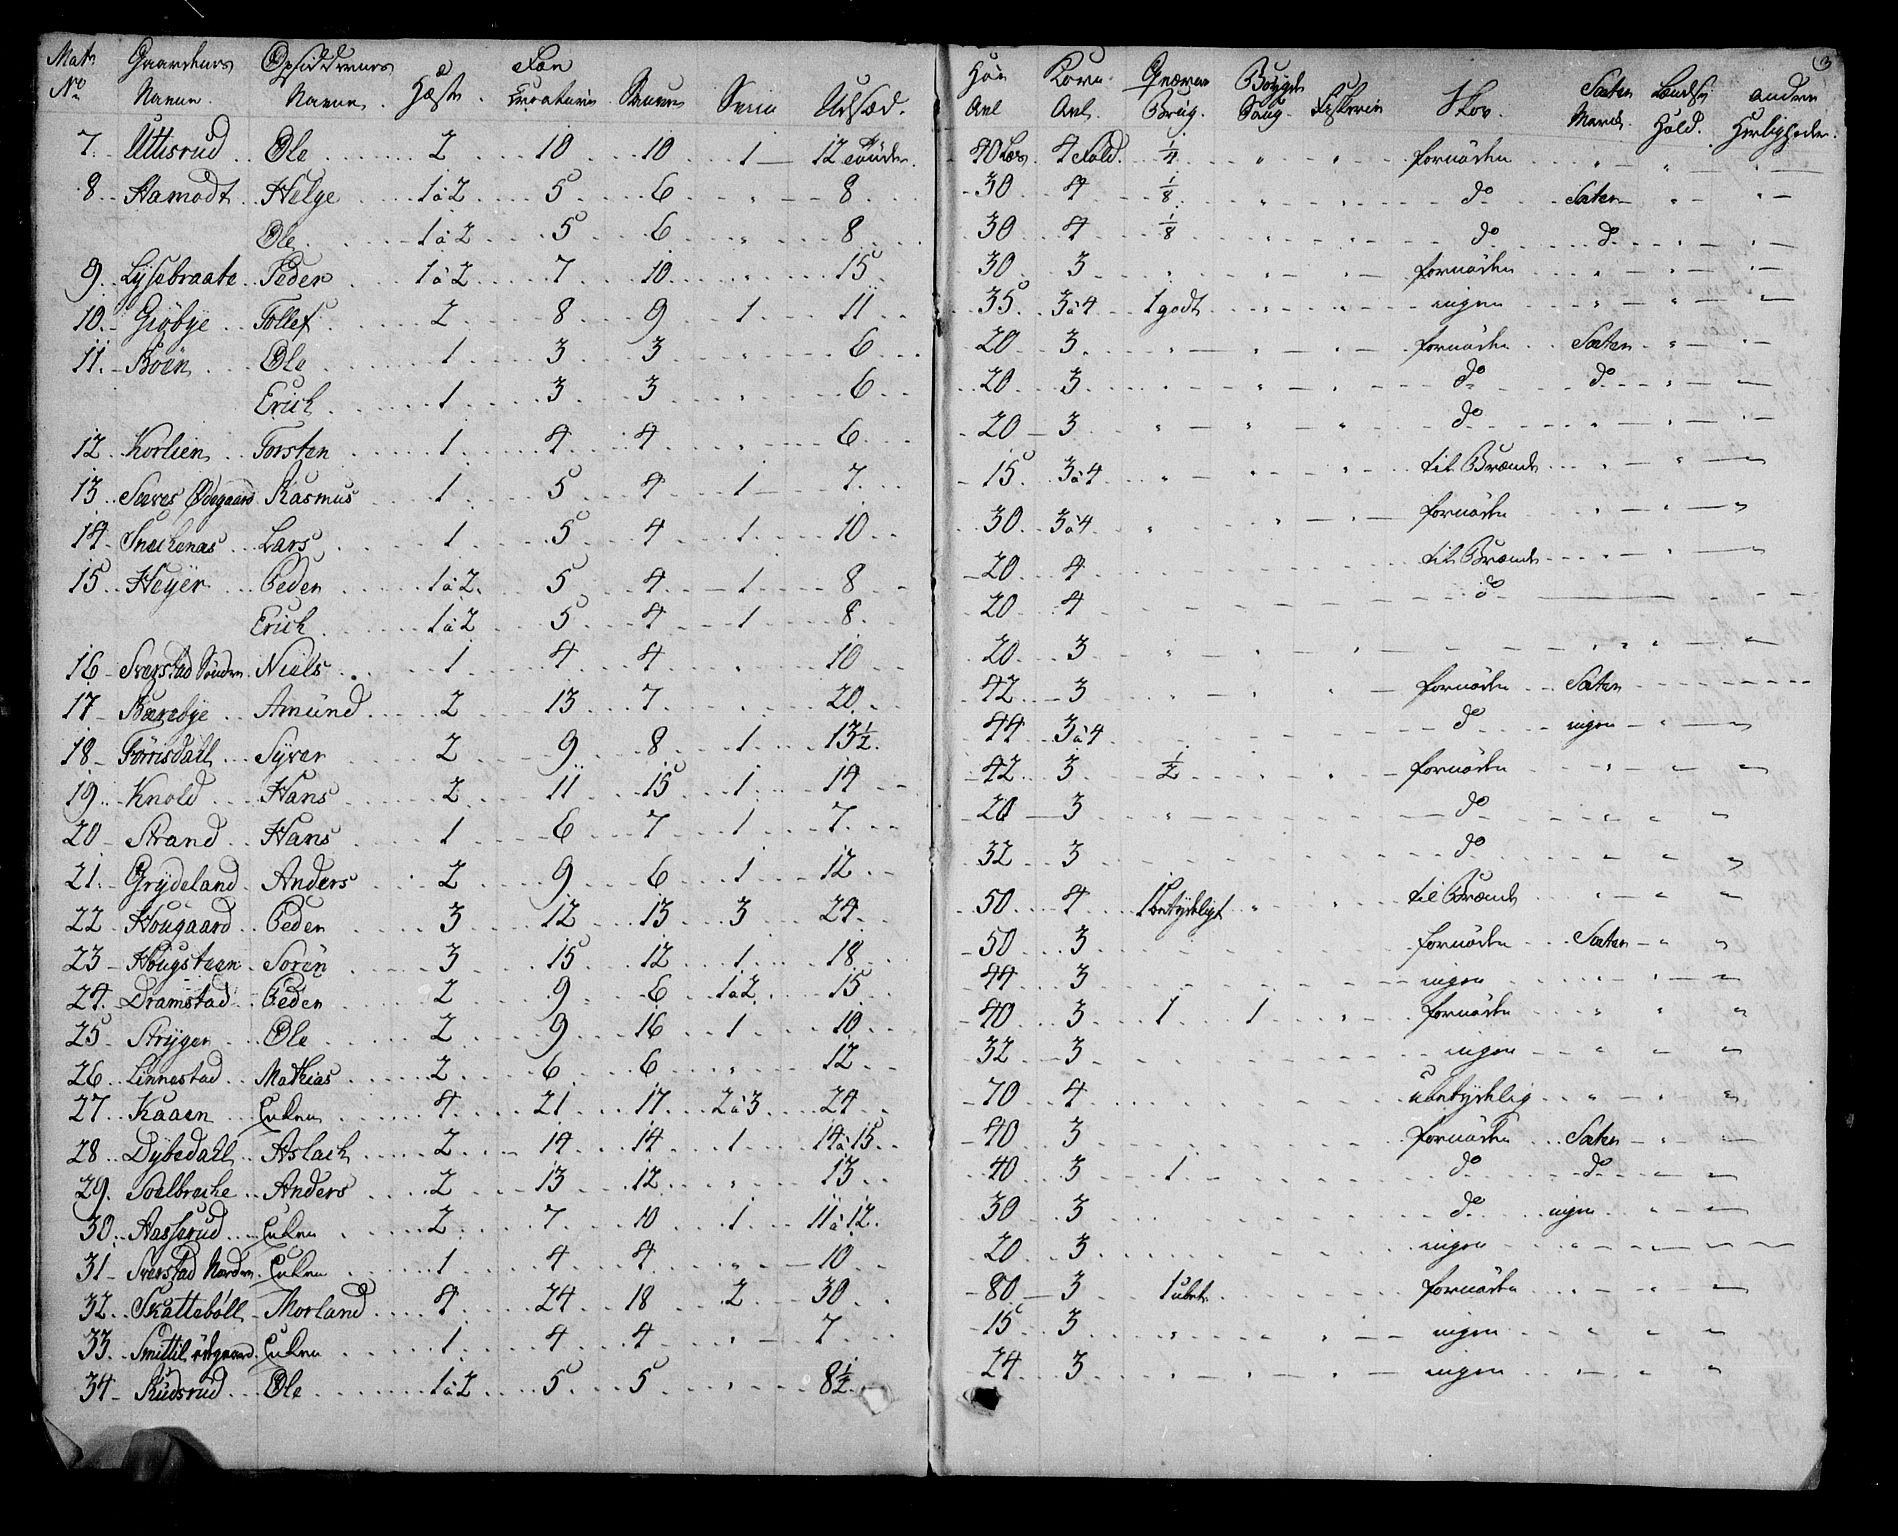 Mat: Gaardenes Opsiddernes Fæe Høe Korn Qværne Bøygde Sæter Landskÿ andere 3
No Navne. Navne. Hæste. Creaturer Svin Udsæd. Avl Avl. Brug. Saug. Fiskerie Skov. March. Hold. Herligheder.
7. Uttisrud Ole 2 10 10 1 12 Tønder. 40 Læs 4 Fold. 1/4 " " fornøden " " "
8 Hamodt Helge 1 à 2 5 6 " 8 30 4 1/8 " " do Sæter " "
Ole 1 à 2 5 6 " 8 30 4 1/8 " " do do " "
9 Lysebraate Peder 1 à 2 7 10 " 15 30 3 " " " fornøden " " "
10 Giøbye Tollef 2 8 9 1 11 35 3 à 4 1 godt " " ingen " " "
11 Boen Ole 1 3 3 " 6 20 3 " " " fornøden Sæter " "
Erich 1 3 3 " 6 20 3 " " " do do " "
12 Korlien Torsten 1 4 4 " 6 20 3 " " " do " " "
13 Sæves Ødegaard Rasmus 1 5 4 1 7 15 3 à 4 " " " til Brænde " " "
14 Snechenæs Lars 1 5 4 1 10 30 3 à 4 " " " fornøden " " "
15 Heyer Peder 1 à 2 5 4 1 8 20 4 til Brænde " " "
Erich 1 à 2 5 4 1 8 20 4 do
16 Sverstad Søndre Niels 1 4 4 " 10 20 3 " " "
17 Bærøbye Amund 2 13 7 " 20 42 3 " " " fornøden Sæter
18 Torrisdall Syver 2 9 8 1 13 1/2 44 3 à 4 do ingen " "
19 Knold Hans 2 11 15 1 14 42 3 1/2 " " fornøden " " "
20 Strand Hans 1 6 7 1 7 20 3 " do " " "
21 Grydeland Anders 2 9 6 1 12 32 3 do " " "
22 Hougaard Peder 3 12 13 3 24 50 4 1 betydeligt " " til Brænde " " "
23 Hougstaen Soren 3 15 12 1 18 50 3 fornøden Sæter " "
24 Dramstad Peder 2 9 6 1 à 2 15 44 3 ingen " " "
25 Stryger Ole 2 9 16 1 10 40 3 1 1 " fornøden " " "
26 Linnestad Mathias 2 6 6 " 12 32 3 ingen " " "
27 Kaaen Enken 4 21 17 2 à 3 24 70 4 ubetydelig " " "
28 Dybedall Aslach 2 14 14 1 14 à 15 40 3 fornøden Sæter " "
29 Soelbreche Anders 2 13 12 " 13 40 3 1 do do " "
30 Aasserud Enken 2 7 10 1 11 à 12 30 3 do ingen " "
31 Sverstad Nordre Enken 1 4 4 " 10 20 3 ingen "
32 Skattebøll Morland 4 24 18 2 30 80 3 1 ubet: fornøden " " "
33 Smittil ødegaard Enken 1 4 4 " 7 15 3 " " " ingen " " "
34 Rudsrud Ole 1 à 2 5 5 " 8 1/2 24 3 " " " ingen " " "